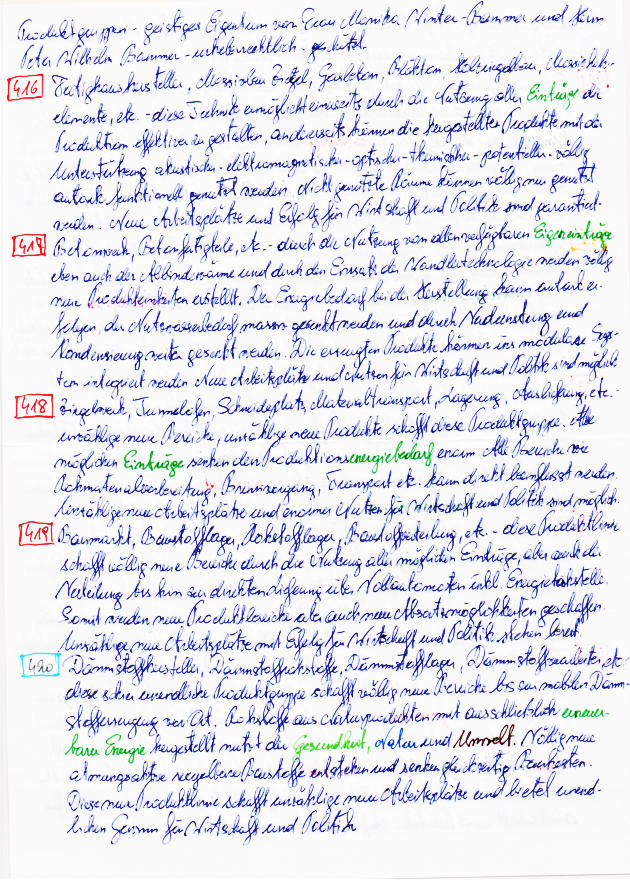 Produktgruppen - geistiges Eigentum von Frau Monika Winter-Bammer und Herrn
Peter Wilhelm Bammer - urheberrechtlich - geschützt.
416 Fertighaushersteller, Massivbau Ziegel, Gasbeton, Blähton, Holzriegelbau, Massivholz-
elemente, etc. - diese Technik ermöglicht einerseits durch die Nutzung aller Einträge die
Produktion effektiver zu gestalten, andererseits können die hergestellten Produkte mit der
Unterstützung akustischer - elektromagnetischer - optischer - thermischer - potentieller - völlig
autark funktionell genutzt werden. Nicht genutzte Räume können völlig neu genutzt
werden. Neue Arbeitsplätze und Erfolg für Wirtschaft und Politik sind garantiert.
417 Betonwerk, Betonfertigteile, etc. - durch die Nutzung von allen verfügbaren Eigeneinträge
eben auch der Abbindewärme und durch den Einsatz der Wandlertechnologie werden völlig
neue Produkteinheiten erstellt. Der Energiebedarf bei der Herstellung kann autark er-
folgen, der Nutzwasserbedarf massiv gesenkt werden und durch Verdunstung und
Kondensierung weiter gesenkt werden. Die erzeugten Produkte können ins modulare Sys-
tem integriert werden. Neue Arbeitsplätze und Nutzen für Wirtschaft und Politik sind möglich.
418 Ziegelwerk, Tunnelofen, Schneideplatz, Materialtransport, Lagerung, Auslieferung, etc. -
unzählige neue Bereiche, unzählige neue Produkte schafft diese Produktgruppe. Alle
möglichen Einträge senken den Produktionsenergiebedarf enorm. Alle Bereiche wie
Rohmaterialvorbereitung, Brennvorgang, Transport etc. kann direkt beeinflusst werden.
Unzählige neue Arbeitsplätze und enormer Nutzen für Wirtschaft und Politik sind möglich.
419 Baumarkt, Baustofflager, Rohstofflager, Baustoffverteilung, etc. - diese Produktlinie
schafft völlig neue Bereiche durch die Nutzung aller möglichen Einträge, aber auch die
Verteilung bis hin zur direkten Lieferung über Vollautomaten inkl. Energietankstelle.
Somit werden neue Produktbereiche aber auch neue Absatzmöglichkeiten geschaffen.
Unzählige neue Arbeitsplätze mit Erfolg für Wirtschaft und Politik stehen bereit.
420 Dämmstoffhersteller, Dämmstoffrohstoffe, Dämmstofflager, Dämmstoffverarbeiter, etc. -
diese schier unendliche Produktgruppe schafft völlig neue Bereiche bis zur mobilen Dämm-
stofferzeugung vor Ort. Rohstoffe aus Naturprodukten mit ausschließlich erneuer-
barer Energie hergestellt nutzt der Gesundheit, Natur und Umwelt. Völlig neue
atmungsaktive recycelbare Baustoffe entstehen und senken gleichzeitig Baukosten.
Diese neue Produktlinie schafft unzählige neue Arbeitsplätze und bietet unend-
lichen Gewinn für Wirtschaft und Politik